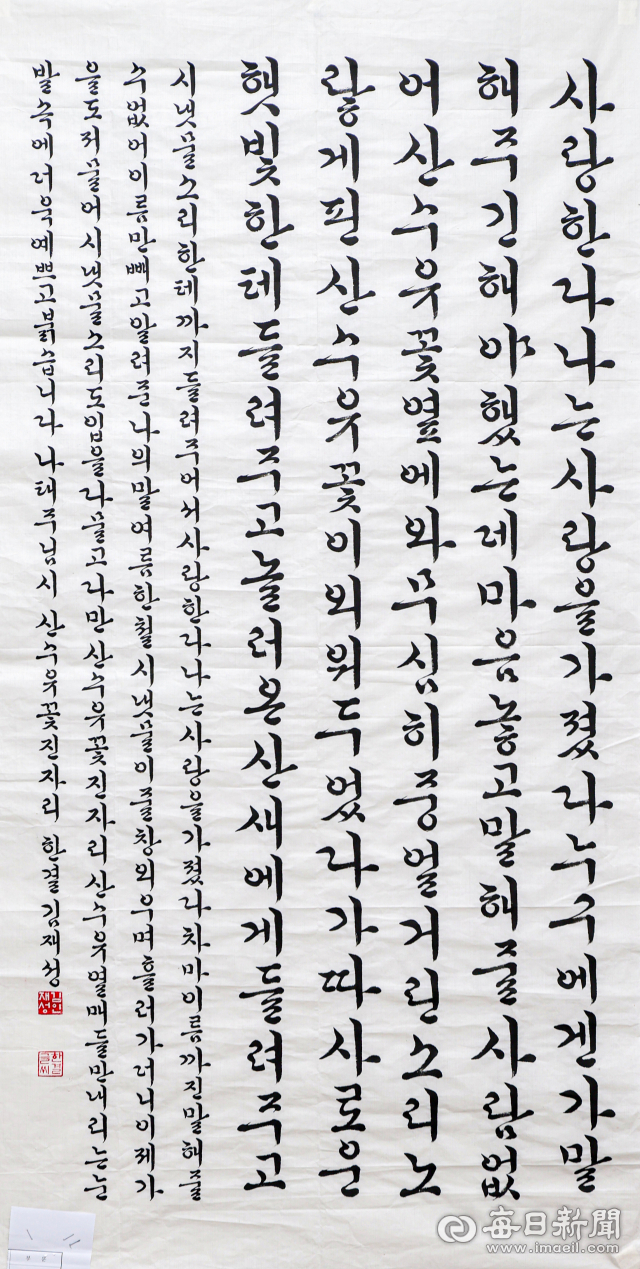 사랑한다나는사랑을가졌다누구에겐가말
해주긴해야했는데마음놓고말해줄사람없
어산수유꽃옆에와무심히중얼거린소리노
랗게핀산수유꽃이외워두었다가따사로운
햇빛한테들려주고놀러온산새에게들려주고
시냇물소리한테까지들려주어서사랑한다나는사랑을가졌다차마이름까진말해줄
수없어이름만빼고알려준나의말여름한철시냇물이줄창외우며흘러가더니이제가
을도저물어시냇물소리도입을다물고다만산수유꽃진자리산수유열매들만내리는눈
발속에더욱예쁘고붉습니다 나태주님시 산수유꽃진자리 한결김재성
김인
재성
한결
글씨
每日新聞
www.imaeil.com